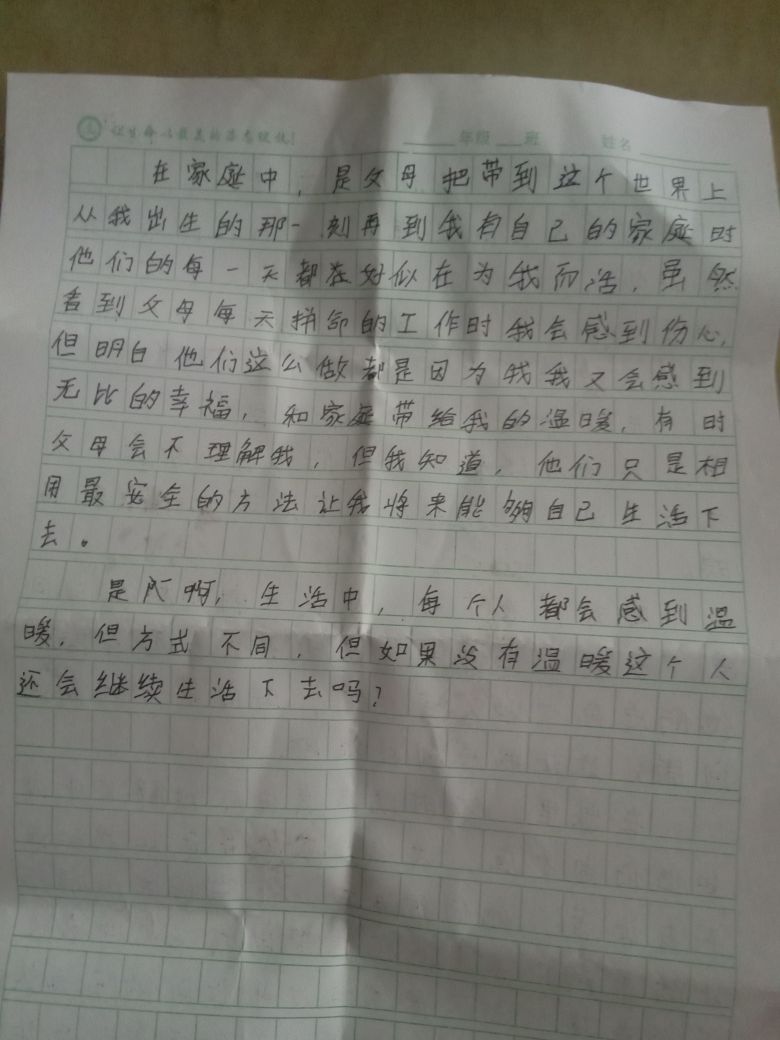 让生命以最美的姿态绽放!
年级 班 姓名
在家庭中，是父母把带到这个世界上
从我出生的那一刻再到我有自己的家庭时
他们的每一天都在好似在为我而活，虽然
看到父母每天拼命的工作时我会感到伤心,
但明白他们这么做都是因为我我又会感到
无比的幸福，和家庭带给我的温暖，有时
父母会不理解我，但我知道，他们只是相
用最安全的方法让我将来能够自己生活下
去。
是啊，生活中，每个人都会感到温
暖，但方式不同，但如果没有温暖这个人
还会继续生活下去吗?